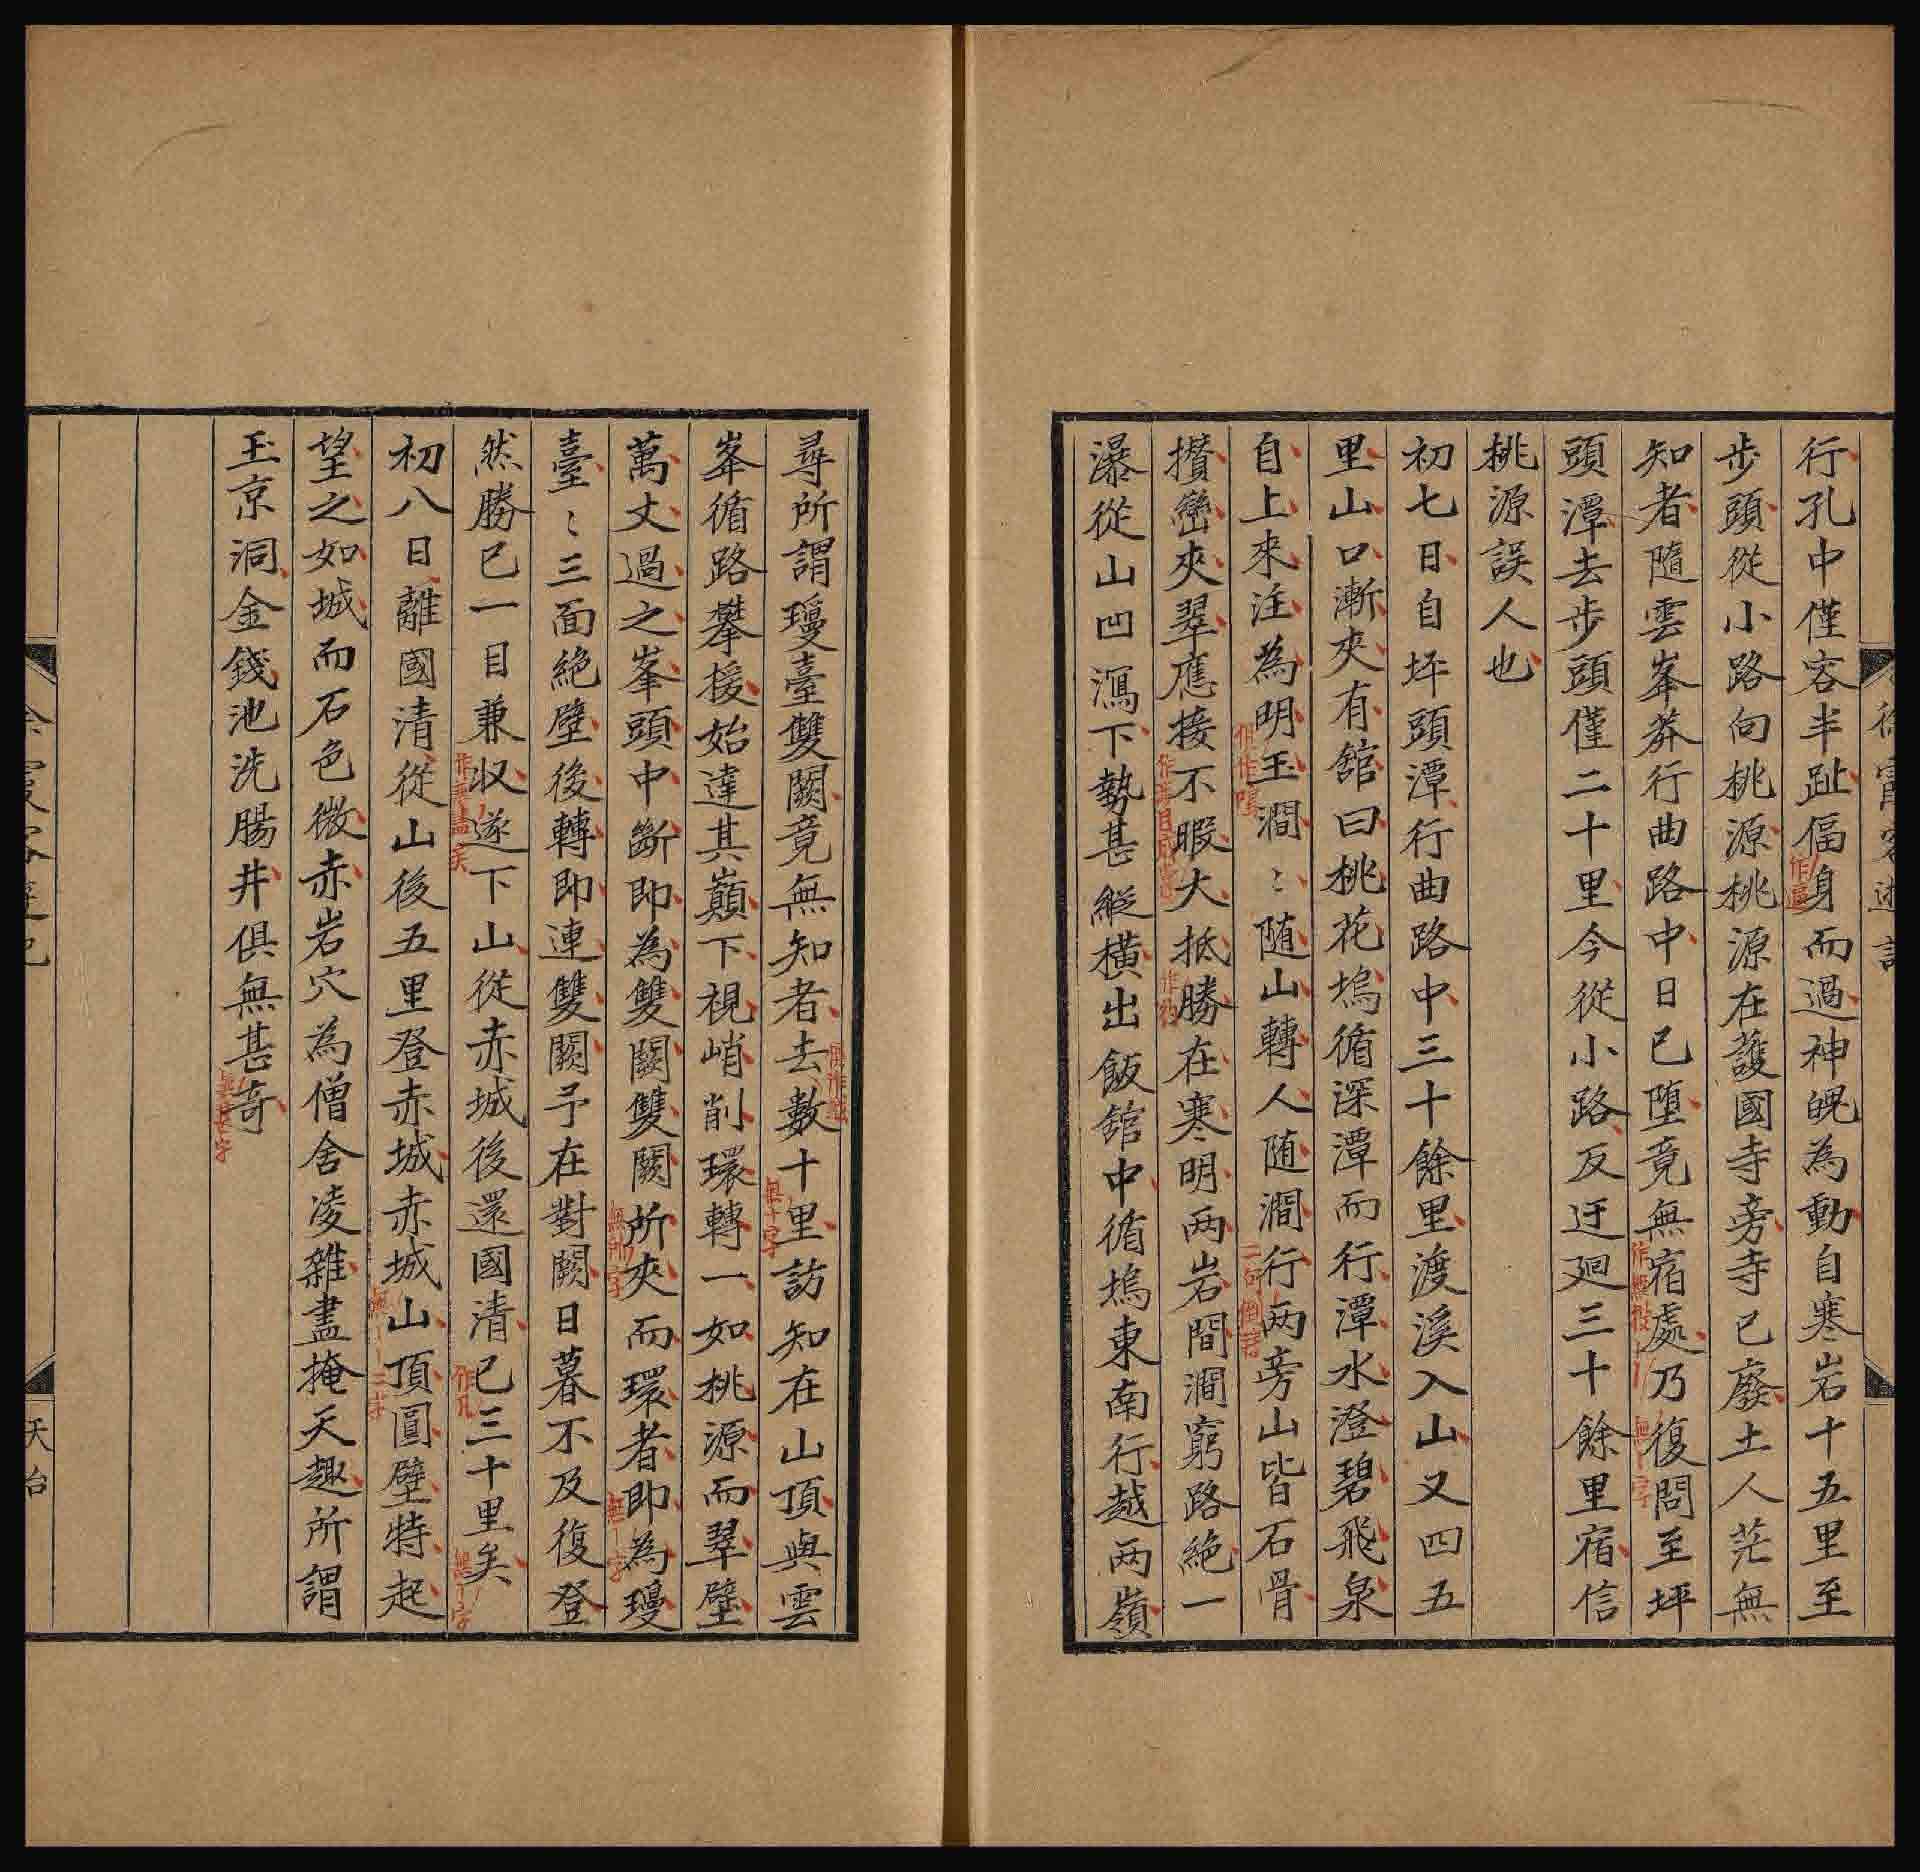 行孔中僅容半趾偪身而過神魄為動自寒岩十五里至
步頭從小路向桃源桃源在護國寺旁寺已廢土人茫無
知者隨雲峯莽行曲路中日已墮竟無宿處乃復問至坪
頭潭去步頭僅二十里今從小路反迂廻三十餘里宿信
桃源誤人也
初七日自坪頭潭行曲路中三十餘里渡溪入山又四五
里山口漸夾有舘曰桃花塢循深潭而行潭水澄碧飛泉
自上來注為明玉澗〻随山轉人随澗行两旁山皆石骨
攅巒夾翠應接不暇大抵勝在寒明两岩間澗窮路絶一
瀑從山凹瀉下勢甚縱橫出飯舘中循塢東南行越两嶺
尋所謂瓊臺雙闕竟無知者去數十里訪知在山頂與雲
峯循路攀援始達其巔下視峭削環轉一如桃源而翠壁
萬丈過之峯頭中斷即為雙闕雙闕所夾而環者即為瓊
臺〻三面絶壁後轉即連雙闕予在對闕日暮不及復登
然勝已一目兼収遂下山從赤城後還國清已三十里矣
初八日離國清從山後五里登赤城赤城山頂圓壁特起
望之如城而石色微赤岩穴為僧舍凌雜盡掩天趣所謂
玉京洞金錢池洗腸井俱無甚奇
作逼
無十字
無所字
天台